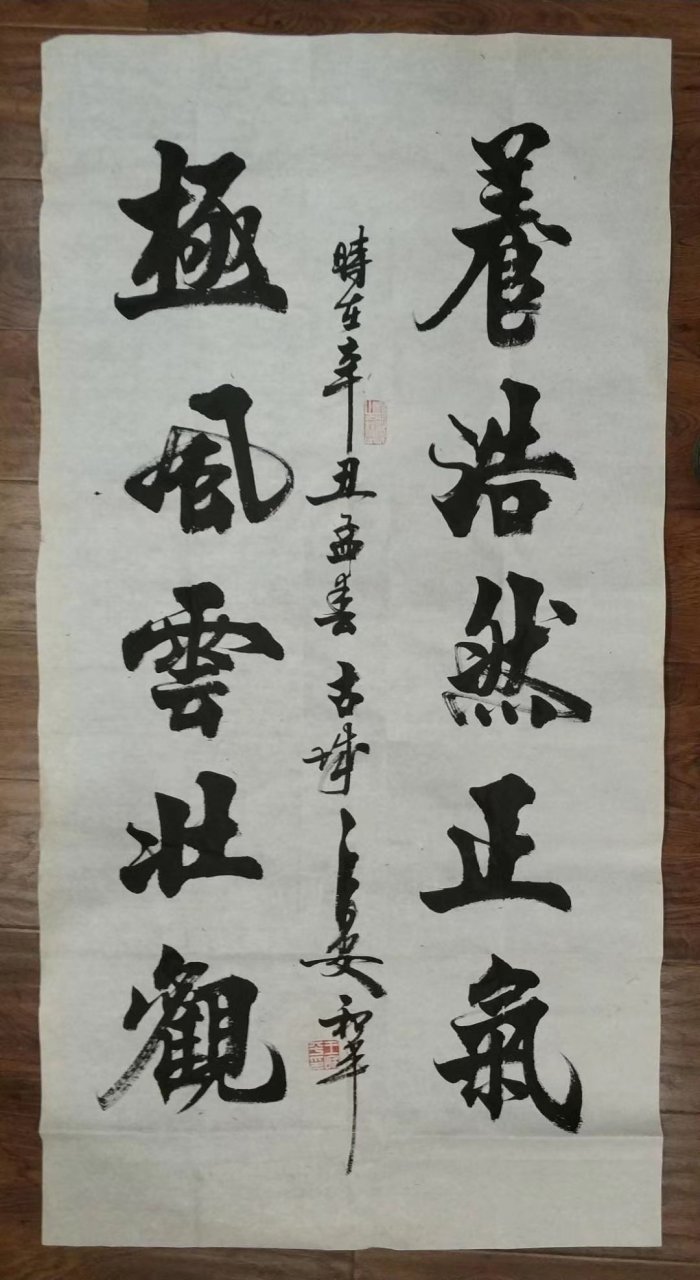 養浩然正氣
時在辛丑孟春古城長安和平
極風雲壯觀